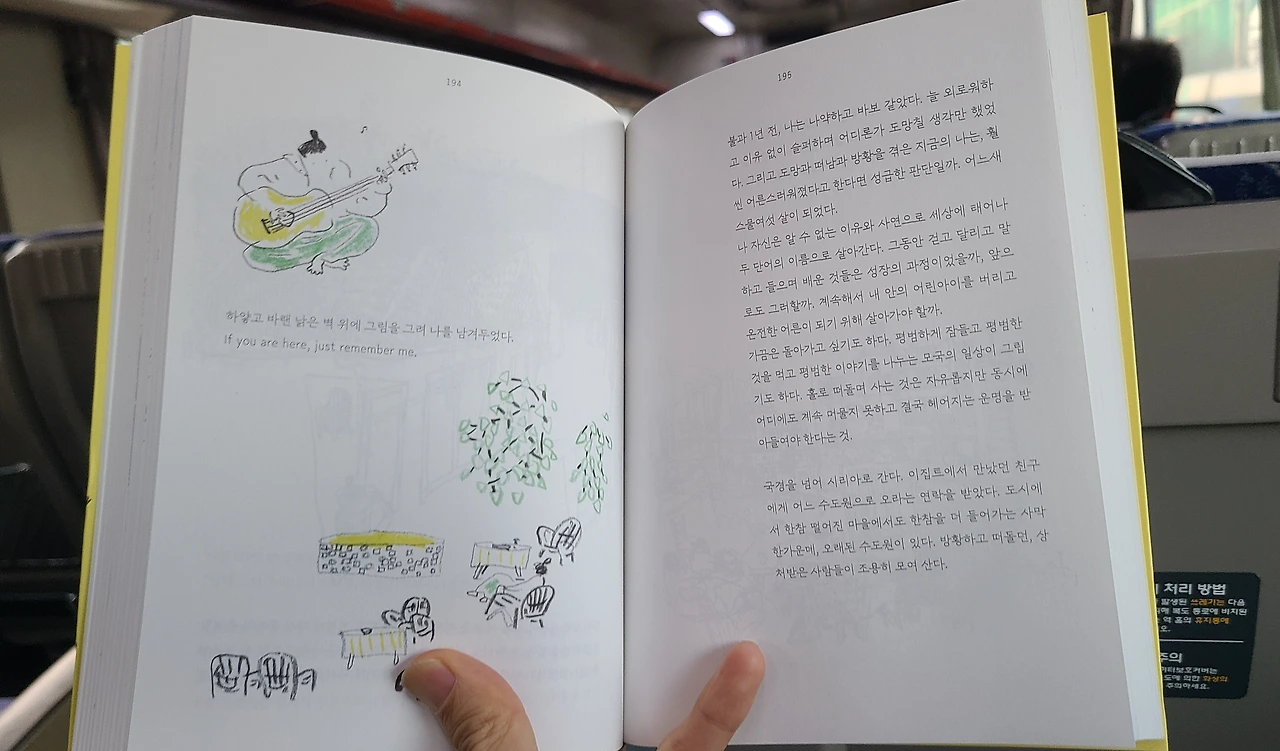 194
하얗고 바랜 낡은 벽 위에 그림을 그려 나를 남겨두었다.
If you are here, just remember me.
195
불과 1년 전, 나는 나약하고 바보 같았다. 늘 외로워하
고 이유 없이 슬퍼하며 어디론가 도망칠 생각만 했었
다. 그리고 도망과 떠남과 방황을 겪은 지금의 나는, 훨
씬 어른스러워졌다고 한다면 성급한 판단일까. 어느새
스물여섯 살이 되었다.
나 자신은 알 수 없는 이유와 사연으로 세상에 태어나
두 단어의 이름으로 살아간다. 그동안 걷고 달리고 말
하고 들으며 배운 것들은 성장의 과정이었을까, 앞으
로도 그러할까. 계속해서 내 안의 어린아이를 버리고
온전한 어른이 되기 위해 살아가야 할까.
가끔은 돌아가고 싶기도 하다. 평범하게 잠들고 평범한
것을 먹고 평범한 이야기를 나누는 모국의 일상이 그립
기도 하다. 홀로 떠돌며 사는 것은 자유롭지만 동시에
어디에도 계속 머물지 못하고 결국 헤어지는 운명을 받
아들여야 한다는 것.
국경을 넘어 시리아로 간다. 이집트에서 만났던 친구
에게 어느 수도원으로 오라는 연락을 받았다. 도시에
서 한참 떨어진 마을에서도 한참을 더 들어가는 사막
한가운데, 오래된 수도원이 있다. 방황하고 떠돌던, 상
처받은 사람들이 조용히 모여 산다.
처리 방법
발생된 쓰레기는 다음
복도 통로에 비치된
역 홈의 휴지통에
주의
의한 화상의
주의하세요.